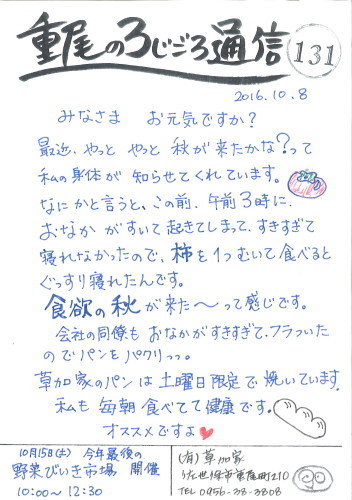 重尾のろじごろ通信 131
2016.10.8
みなさま お元気ですか?
最近、やっと やっと 秋が来たかな?って
私の身体が 知らせてくれています。
なにかと言うと、この前、午前3時に、
おなかがすいて起きてしまって、すきすぎて
寝れなかったので、柿を1つむいて食べると
ぐっすり寝れたんです。
食欲の秋が来た〜って感じです。
会社の同僚も おなかがすきすぎて、フラついた
のでパンをパクリっっ。
草加家のパンは土曜日限定で焼いています。
私も 毎朝 食べてて健康です。
オススメですよ
10月15日(土) 今年最後の
野菜びいき市場 開催
10:00〜12:30
(有)草加家
佐世保市重尾町210
TEL 0956-38-3808